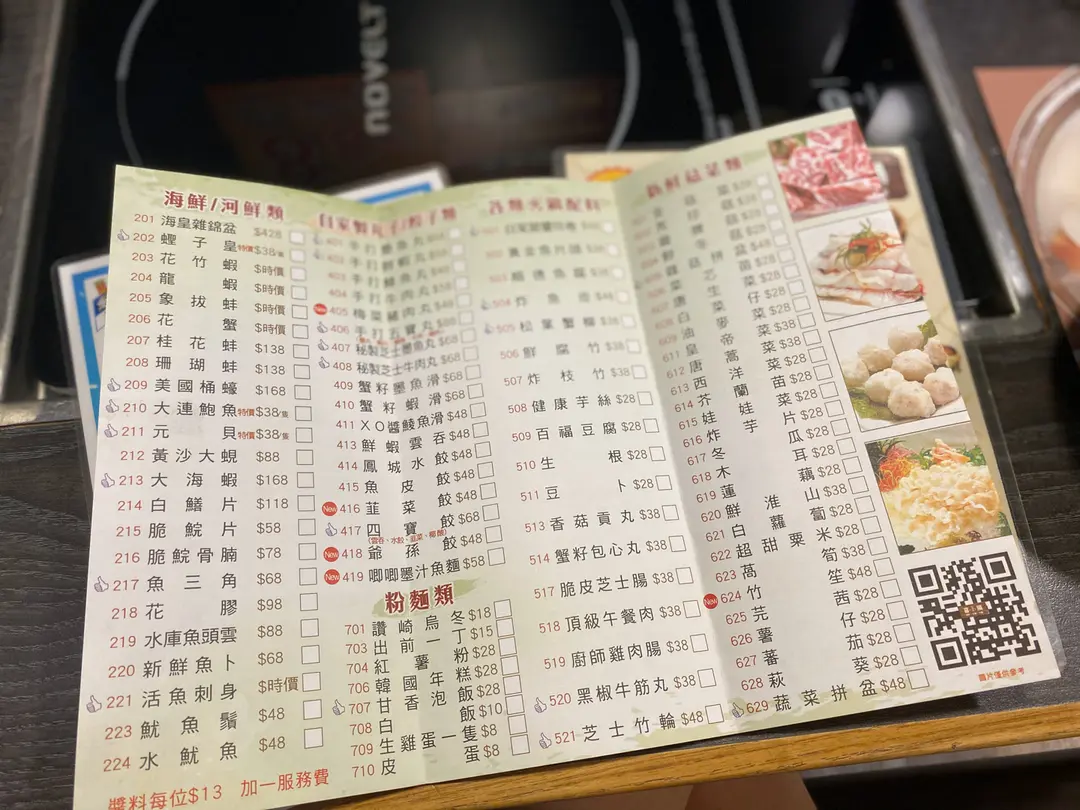 NOVELT
海鮮/河鮮類
201 海皇雜錦盆 $428
202 蟶子皇 特價$38/隻
203 花竹蝦 $時價
204 龍蝦 $時價
205 象拔蚌 $時價
206 花蟹 $時價
207 桂花蚌 $138
208 珊瑚蚌 $138
209 美國桶蠔 $168
210 大連鮑魚 特價$38/隻
211 元貝 特價$38/隻
212 黃沙大蜆 $88
213 大海蝦 $168
214 白鱔片 $118
215 脆鯇片 $58
216 脆鯇骨腩 $78
217 魚三角 $68
218 花膠 $98
219 水庫魚頭雲 $88
220 新鮮魚卜 $68
221 活魚刺身 $時價
223 魷魚鬚 $48
224 水魷魚 $48
醬料每位$13 加一服務費
自家製丸子/餃子類
404 手打牛肉丸
New 405 梅菜豬肉丸 $48
406 手打五寶丸
407 秘製芝士墨魚丸 $68
408 秘製芝士牛肉丸 $68
409 蟹籽墨魚滑 $68
410 蟹籽蝦滑 $68
411 XO醬鯪魚滑 $48
413 鮮蝦雲吞 $48
414 鳳城水餃 $48
415 魚皮餃 $48
New 416 韮菜餃 $48
417 四寶餃 $68
(雲吞、水餃、韮菜、椰菜)
New 418 爺孫餃 $48
New 419 唧唧墨汁魚麵 $58
粉麵類
701 讚崎烏冬 $18
703 出前一丁 $15
704 紅薯粉 $28
706 韓國年糕 $28
707 甘香泡飯 $28
708 白飯 $10
709 生雞蛋一隻 $8
710 皮蛋 $8
各類火鍋配料
503 順德魚腐
504 炸魚皮 $48
505 松葉蟹柳 $38
506 鮮腐竹 $38
507 炸枝竹 $38
508 健康芋絲 $28
509 百福豆腐 $28
510 生根 $28
511 豆卜 $28
513 香菇貢丸 $38
514 蟹籽包心丸 $38
517 脆皮芝士腸 $38
518 頂級午餐肉 $38
519 廚師雞肉腸 $38
520 黑椒牛筋丸 $38
521 芝士竹輪 $48
新鮮菇菜類
611 皇帝菜 $38
612 唐蒿 $38
613 西洋菜 $28
614 芥蘭苗 $38
615 娃娃菜 $28
616 炸芋片 $28
617 冬瓜 $28
618 木耳 $28
619 蓮藕 $28
620 鮮淮山 $38
621 白蘿蔔 $28
622 超甜粟米 $28
623 萵筍 $38
New 624 竹笙 $48
625 芫茜 $28
626 薯仔 $28
627 蕃茄 $28
628 萩葵 $28
629 蔬菜拼盆 $48
圖片僅供參考